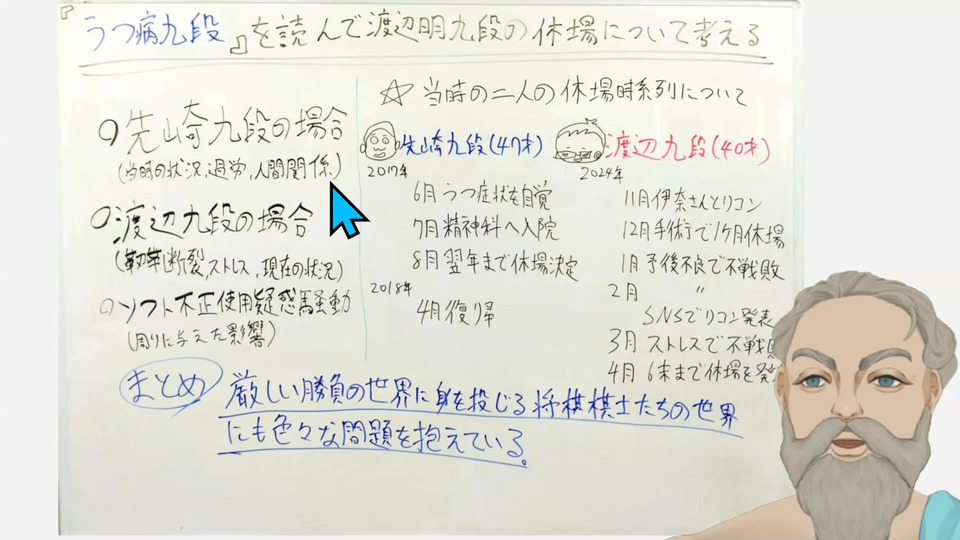 『うつ病九段』を読んで渡辺明九段の休場について考える
○先崎九段の場合
(当時の状況,過労,人間関係)
○渡辺九段の場合
(靭帯断裂,ストレス,現在の状況)
○ソフト不正使用疑惑騒動
(周りに与えた影響)
☆当時の二人の休場時系列について
先崎九段(47才)
2017年
6月うつ症状を自覚
7月精神科へ入院
8月翌年まで休場決定
2018年
4月復帰
渡辺九段(40才)
2024年
11月伊奈さんとリコン
12月手術で1ヶ月休場
1月予後不良で不戦敗
2月 〃
SNSでリコン発表
3月ストレスで不戦
4月 6末まで休場を
まとめ
厳しい勝負の世界に身を投じる将棋棋士たちの世界
にも色々な問題を抱えている。